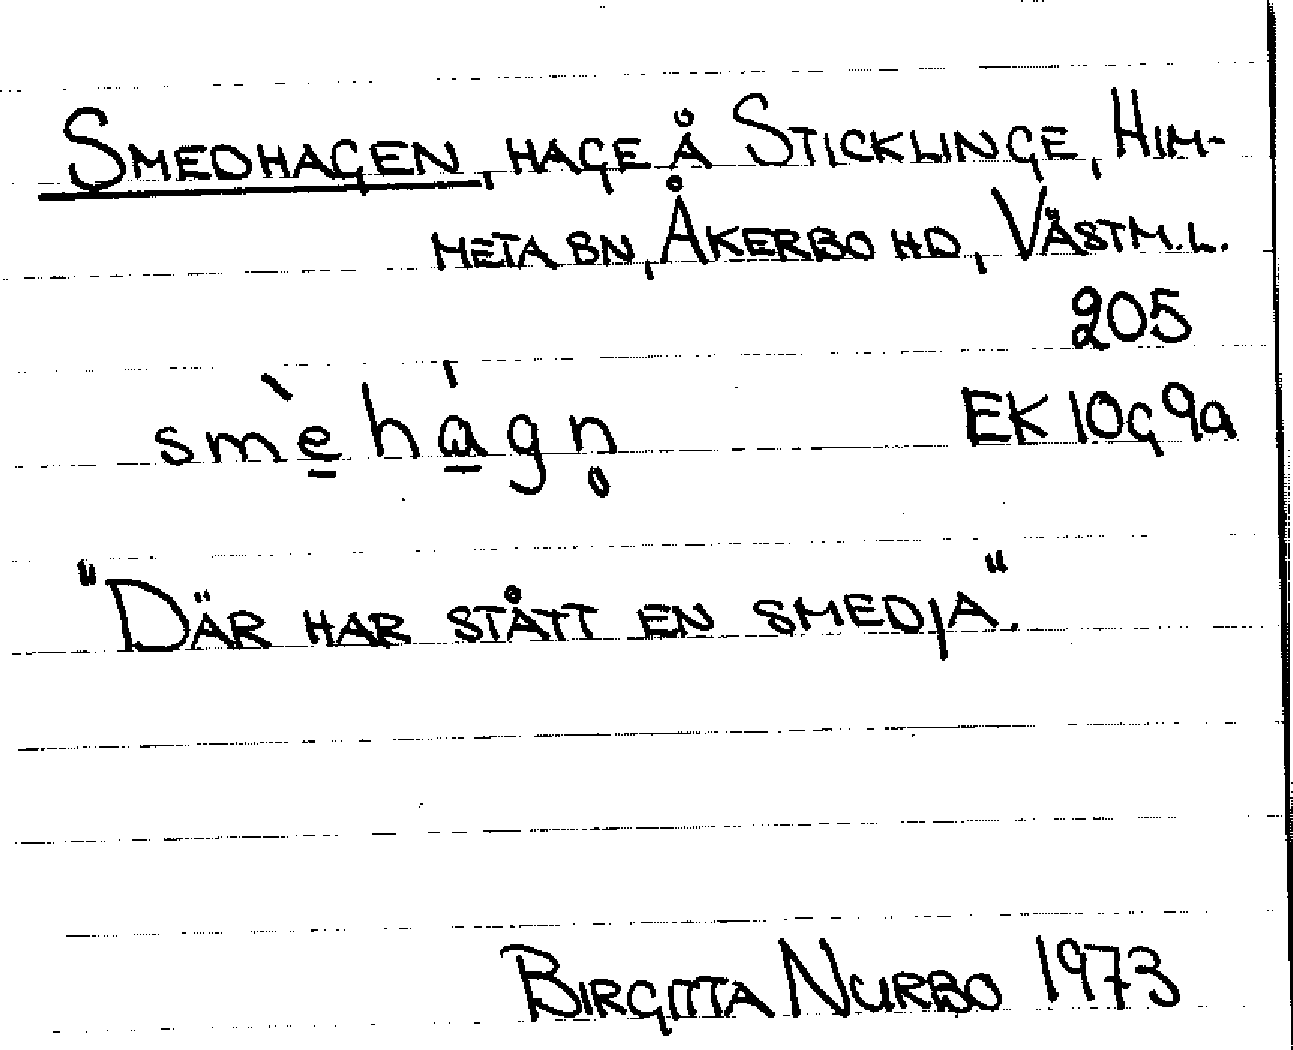 SMEDHAGEN, HAGE Å STICKLINGE, HIM-
META BN, ÅKERBO HD, VÄSTM.L.
205
smèhágn̥ EK 10g 9a
"DÄR HAR STÅTT EN SMEDJA."
BIRGITTA NURBO 1973